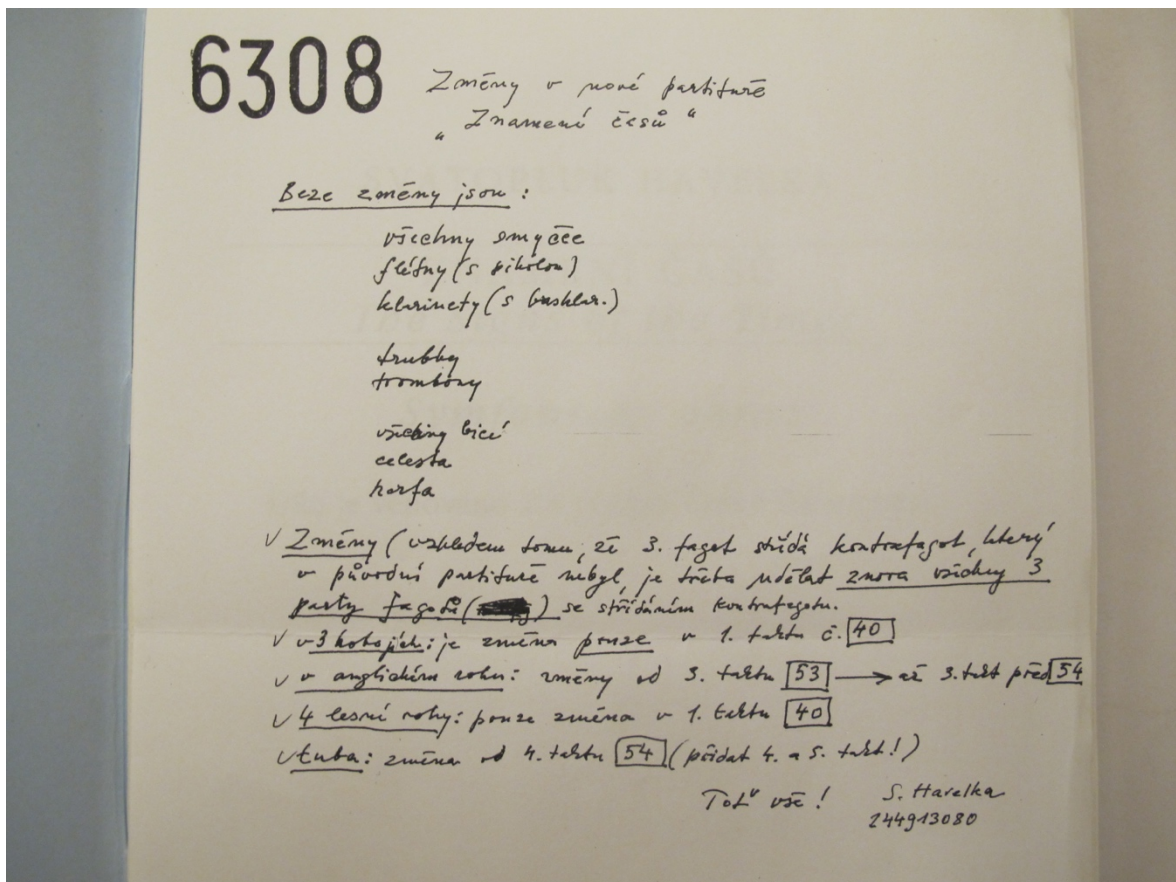 6308
Změny v nové partituře
„Znamení časů“
Beze změny jsou:
všechny smyčce
flétny (s pikolou)
klarinety (s basklar.)
trubky
trombóny
všechny bicí
celesta
harfa
✓ Změny (vzhledem tomu, že 3. fagot střídá kontrafagot, který
v původní partituře nebyl, je třeba udělat znova všechny 3
party fagotů () se střídáním kontrafagotu.
✓ v 3 hobojích: je změna pouze v 1. taktu č. 40
✓ v anglickém rohu: změny od 3. taktu 53 → až 3. takt před 54
✓ 4 lesní rohy: pouze změna v 1. taktu 40
✓ tuba: změna od 4. taktu 54 (přidat 4. a 5. takt!)
Toť vše! S. Havelka
244913080